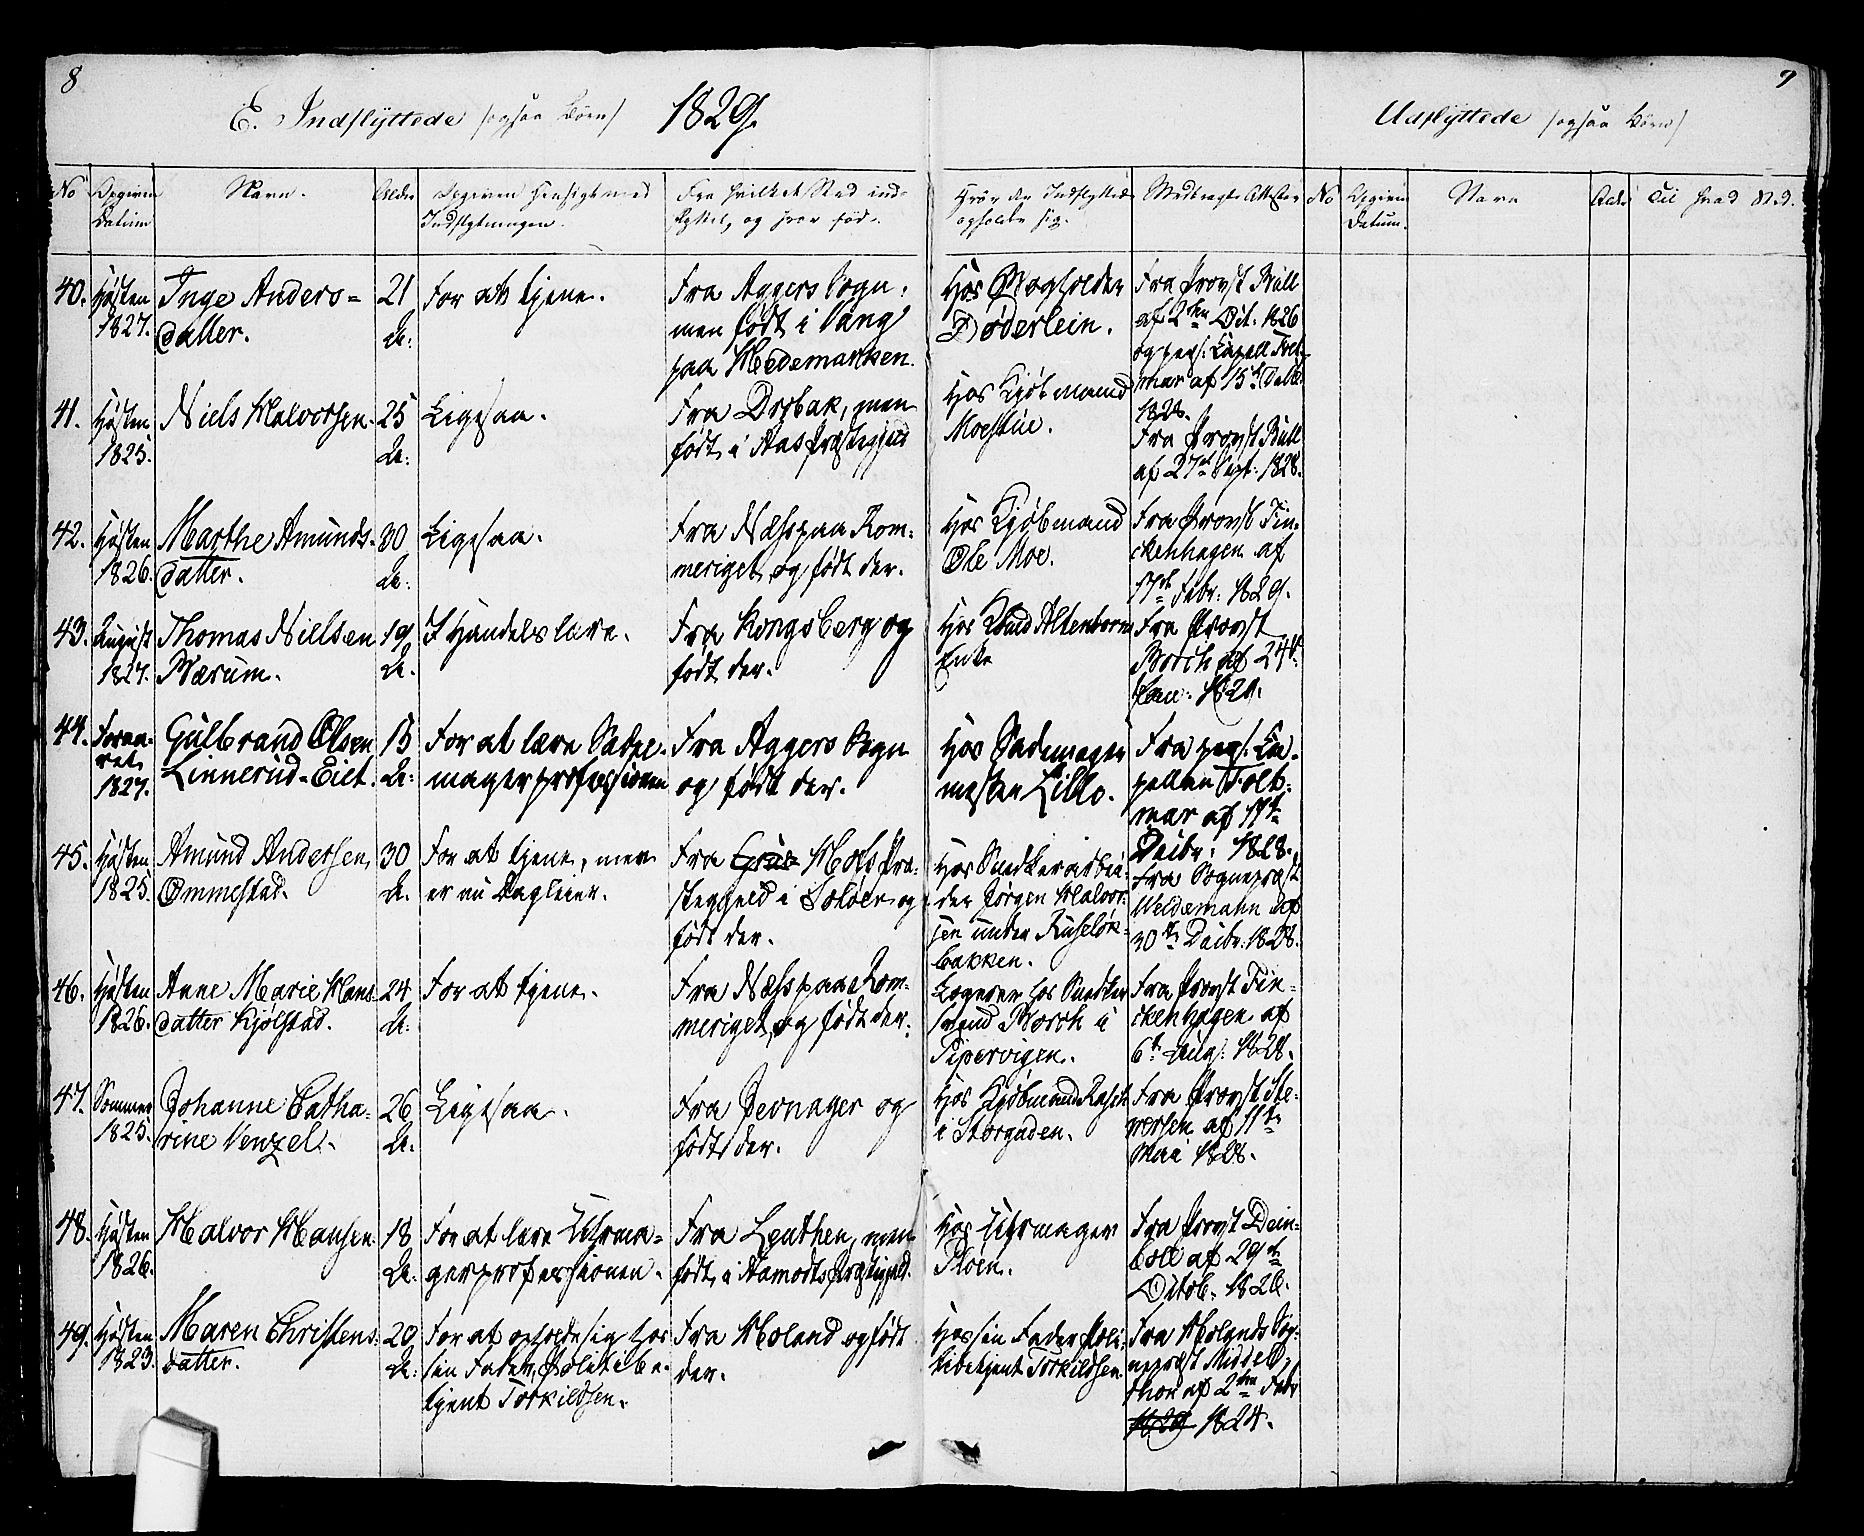 8
9
E. Indflyttede /ogsaa Børn/ 1829.
Udflyttede /ogsaa Børn/
No
Opgiven
Datum
Navn.
Alder
Opgiven Hensigt med
Indflytningen.
Fra hvilket Sted ind-
flyttet, og hvor fød.
Hvor den Indflyttede
opholder sig.
Medbragte Attester
No
Opgiven
Datum.
Navn
Alder
Til hvad Sted.
40. Høsten 1827.
Inge Anders=
datter.
21 A:
For at tjene.
Fra Aggers Sogn,
men født i Vang
paa Hedemarken.
Hos
Døderlein.
Fra Provst Bull
af 2den Oct. 1826
og pers. Capell
mar af 15d Debr.
1828.
41. Høsten 1825.
Niels Halvorsen.
25 A:
Ligesaa.
Fra Drøbak, men
født i Aas Præstegjeld
Hos Kjøbmand
Moestue.
Fra Provst Bull
af 27de Sept: 1828.
42. Høsten 1826.
Marthe Amunds-
datter.
30 A:
Ligesaa.
Fra Næs paa Rom-
meriget, og født der.
Hos Kjøbmand
Ole Moe.
Fra Provst Fin-
ckenhagen af
17de Febr: 1829.
43. August 1827.
Thomas Nielsen
Nærum.
19 A.
I Handelslære.
Fra Kongsberg og
født der.
Hos Altenborn
Enke
Fra Provst
af 24de
Jan: 1829.
44. Foraa-
ret 1827.
Gulbrand Olsen
Linnerud-Eiet.
15 A:
For at lære Sadel-
magerprofessionen
Fra Aggers Sogn
og født der.
Hos Sademager
mester Lillo.
Fra pers. Ca-
pellan Folt-
mar af 17de
Decbr: 1828.
45. Høsten 1825.
Amund Andersen
Ommestad.
30 A.
For at tjene, men
er nu Dagleier.
Fra Grue Hofs Præ-
stegjeld i Soløer og
født der.
Hos Snedkerarbei-
der Jørgen Halvor-
sen under Ruseløk-
bakken.
Fra Sognepræst
Weidemahn af
30te Decbr: 1828.
46. Høsten 1826.
Anne Marie Hans-
datter Kjølstad.
24 A:
For at tjene.
Fra Næs paa Rom-
meriget, og født der.
Logerer hos Snedker
svend Borch i
Pipervigen.
Fra Provst Fin-
ckenhagen af
6te Aug: 1828.
47. Sommer 1825.
Johanne Catha-
rine Venzel.
26 A.
Ligesaa.
Fra Jevnager og
født der.
Hos Kjøbmand Rasch
i Storgaden.
Fra Provst Ste-
nersen af 11te
Mai 1828.
48. Høsten 1826.
Halvor Hansen
18 A.
For at lære Uhrma-
gerprofessionen.
Fra Leuthen, men
født i Aamodts Præstegjeld.
Hos Uhrmager
Ploen.
Fra Provst Dein-
boll af 29de
Octob. 1826.
49. Høsten 1823.
Maren Christens-
datter.
20 A:
For at opholde sig hos
sin Fader, Politibe-
tjent Torkildsen.
Fra Holand og født
der.
Hos sin Fader Poli-
tibetjent Torkildsen
Fra Holands Sog-
nepræst Middel-
thon af 2den Febr
1829 1824.